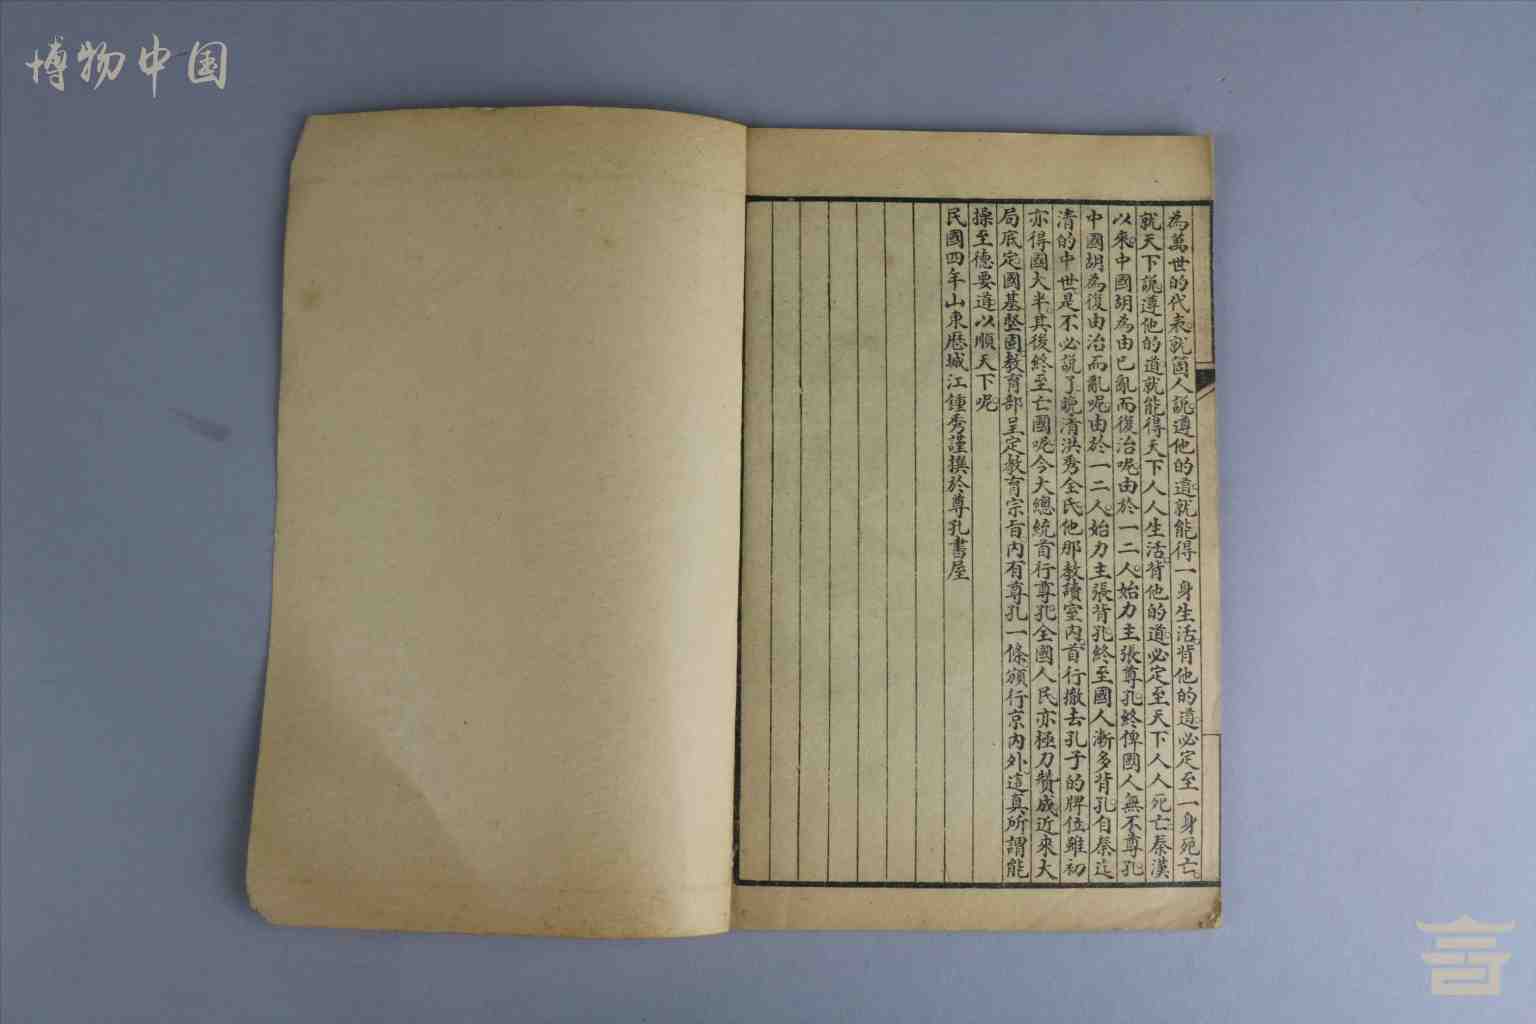 博物中国
為萬世的代表就箇人說遵他的道就能得一身生活背他的道必定至一身死亡
就天下說遵他的道就能得天下人人生活背他的道必定至天下人人死亡秦漢
以來中國胡為由已亂而復治呢由於一二人始力主張尊孔終俾國人無不尊孔
中國胡為復由治而亂呢由於一二人始力主張背孔終至國人漸多背孔自秦迄
清的中世是不必說了晚清洪秀全氏他那教讀室內首行撤去孔子的牌位雖初
亦得國大半其後終至亡國呢今大總統首行尊孔全國人民亦極力贊成近來大
局底定國基堅固教育部呈定教育宗旨內有尊孔一條頒行京內外這真所謂能
操至德要道以順天下呢
民國四年山東歷城江鍾秀謹撰於尊孔書屋